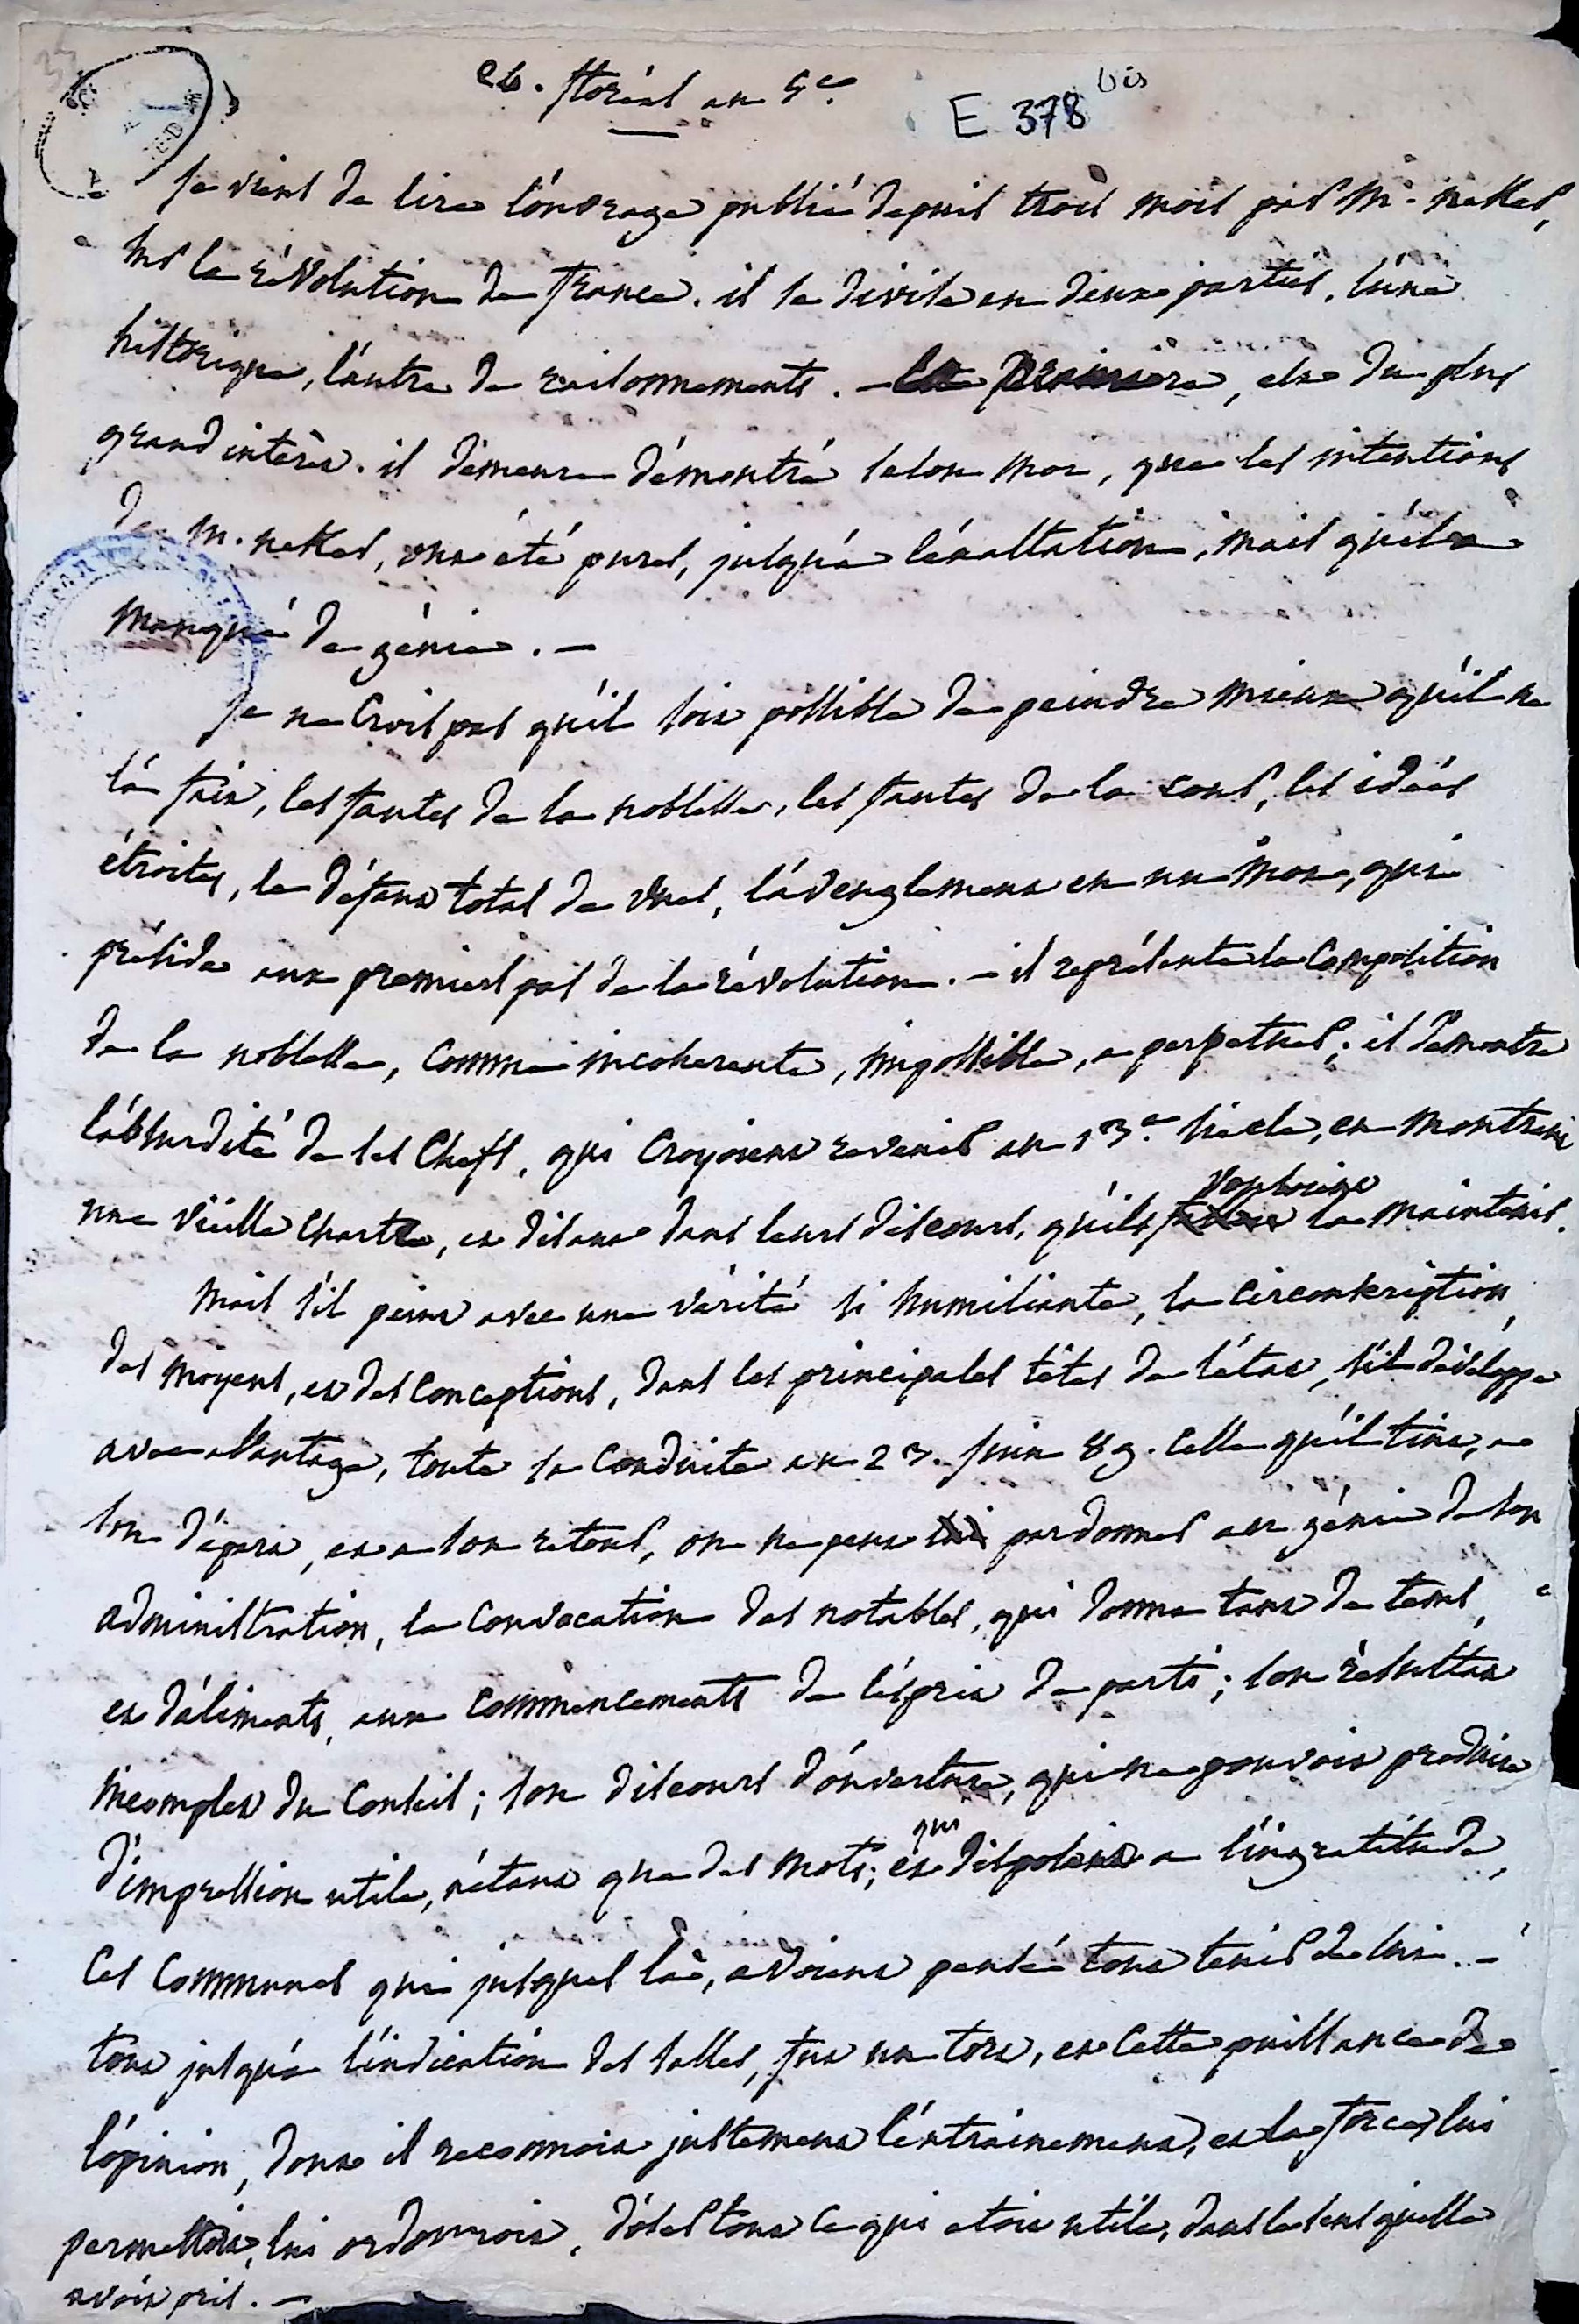 floréal an 5e.
E 378 bis
je viens de lire l'ouvrage publié depuis trois mois par M. neKer,
sur la révolution de france. il se divise en deux parties, l'une
historique, l'autre de raisonnements. – la premiere, est du plus
grand intérêt. il demeure démontré selon moi, que les intentions
de M. neKer, ont été pures, jusqu'a l'éxaltation, mais qu'il a
manqué de génie. –
je ne crois pas qu'il soit possible de peindre mieux qu'il ne
l'a fait, les fautes de la noblesse, les fautes de la cour, les idées
étroites, le défaut total de vues, l'aveuglement en un mot, qui
préside aux premiers pas de la révolution. – il représente la composition
de la noblesse, comme incoherente, impossible, a perpetuer; il démontre
l'absurdité de ses chefs, qui croyoient revenir au 13e. siecle, en montrant
une vieille charte, et disant dans leurs discours, qu'ils vouloient la maintenir.
Mais s'il peint avec une vérité si humiliante, la circonscription,
des moyens, et des conceptions, dans les principales têtes de l'état, s'il développe
avec avantage, toute sa conduite au 23. juin 89. celle qu'il tint, a
son départ, et a son retour, on ne peut pardonner au génie de son
administration, la convocation des notables, qui donna tant de tems,
et d'aliments, aux commencements de l'esprit de parti; son résultat
incomplet du conseil; son discours d'ouverture, qui ne pouvoit produire
d'impression utile, n'étant que des mots; et qui disposa a l'ingratitude,
ces communes qui jusques là, avoient pensé tout tenir de lui. –
tout jusqu'a l'indication des salles, fut un tort, et cette puissance de
l'opinion, dont il reconnoit justement l'entrainement, et la force, lui
permettoit, lui ordonnoit, d'oser tout ce qui etoit utile, dans le sens qu'elle
avoit pris. –